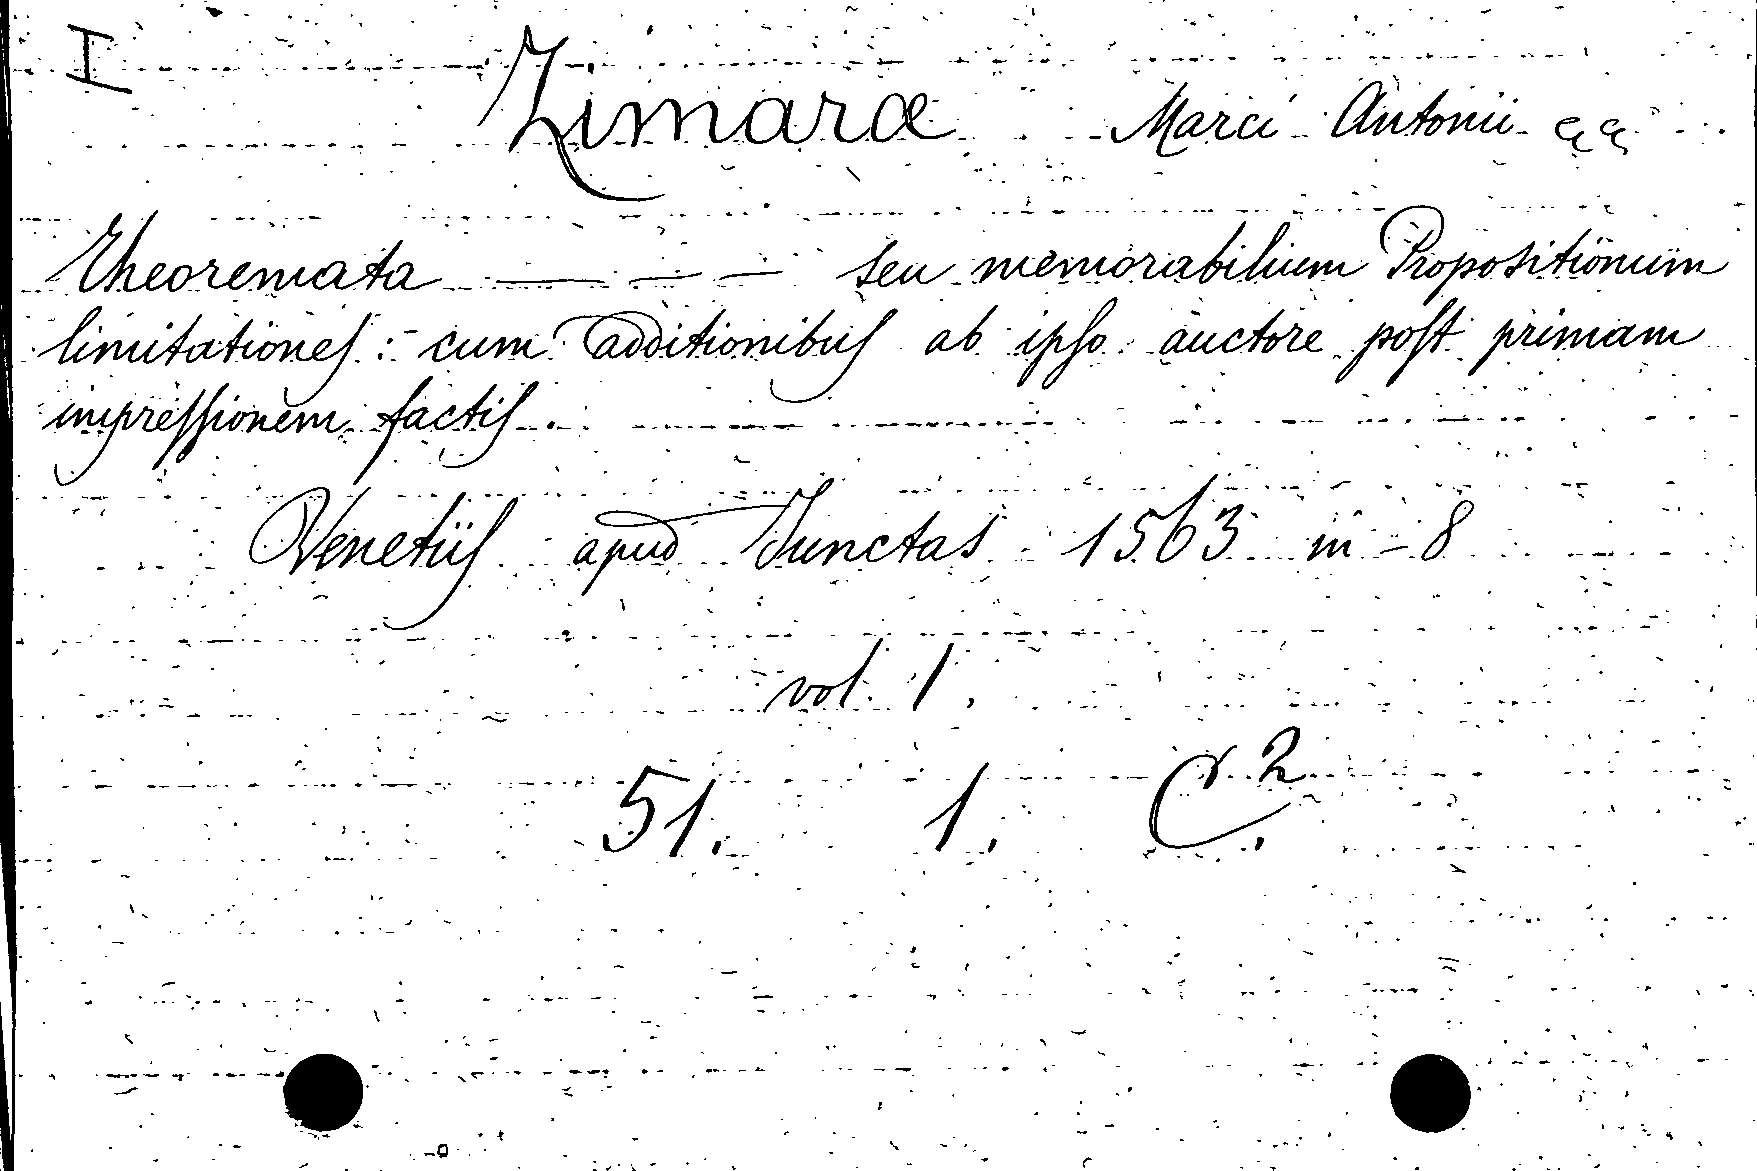 I
Zimaræ Marci Antonii
Theoremata — — — seu memorabilium Propositionum
limitationes: cum additionibus ab ipso auctore post primam
impressionem factis.
Venetiis apud Junctas 1563 in-8
vol. 1.
51. 1. C.²